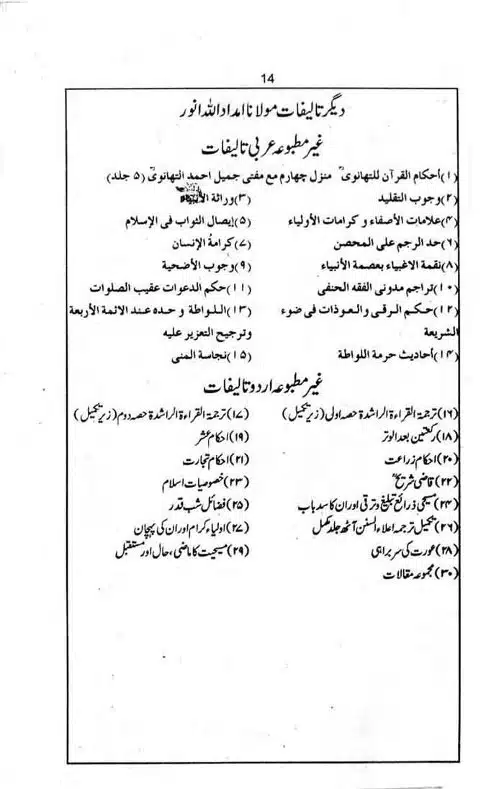 14
دیگر تالیفات مولانا امداد اللہ انور
غیر مطبوعہ عربی تالیفات
(۱) أحکام القرآن للتهانویؒ منزل چہارم مع مفتی جمیل احمد التهانویؒ (۵ جلد)
(۲) وجوب التقلید (۳) وراثة
(۴) علامات الأصفیاء و کرامات الأولیاء (۵) إیصال الثواب فی الإسلام
(۶) حد الرجم علی المحصن (۷) کرامة الإنسان
(۸) نقمة الاغبیاء بعصمة الأنبیاء (۹) وجوب الأضحیة
(۱۰) تراجم مدونی الفقه الحنفی (۱۱) حکم الدعوات عقیب الصلوات
(۱۲) حکم الرقی والعوذات فی ضوء (۱۳) اللواطة و حده عند الائمة الأربعة
الشریعة وترجیح التعزیر علیه
(۱۴) أحادیث حرمة اللواطة (۱۵) نجاسة المنی
غیر مطبوعہ اردو تالیفات
(۱۶) ترجمۃ القراءۃ الراشدۃ حصہ اول (زیر تکمیل) (۱۷) ترجمۃ القراءۃ الراشدۃ حصہ دوم (زیر تکمیل)
(۱۸) رکعتین بعد الوتر (۱۹) احکام عشر
(۲۰) احکام زراعت (۲۱) احکام تجارت
(۲۲) قاضی شریحؒ (۲۳) خصوصیات اسلام
(۲۴) مسیحی ذرائع تبلیغ و ترقی اور ان کا سد باب (۲۵) فضائل شب قدر
(۲۶) تکمیل ترجمہ اعلاء السنن آٹھ جلد مکمل (۲۷) اولیاء کرام اور ان کی پہچان
(۲۸) عورت کی سربراہی (۲۹) مسیحیت کا ماضی، حال اور مستقبل
(۳۰) مجموعہ مقالات